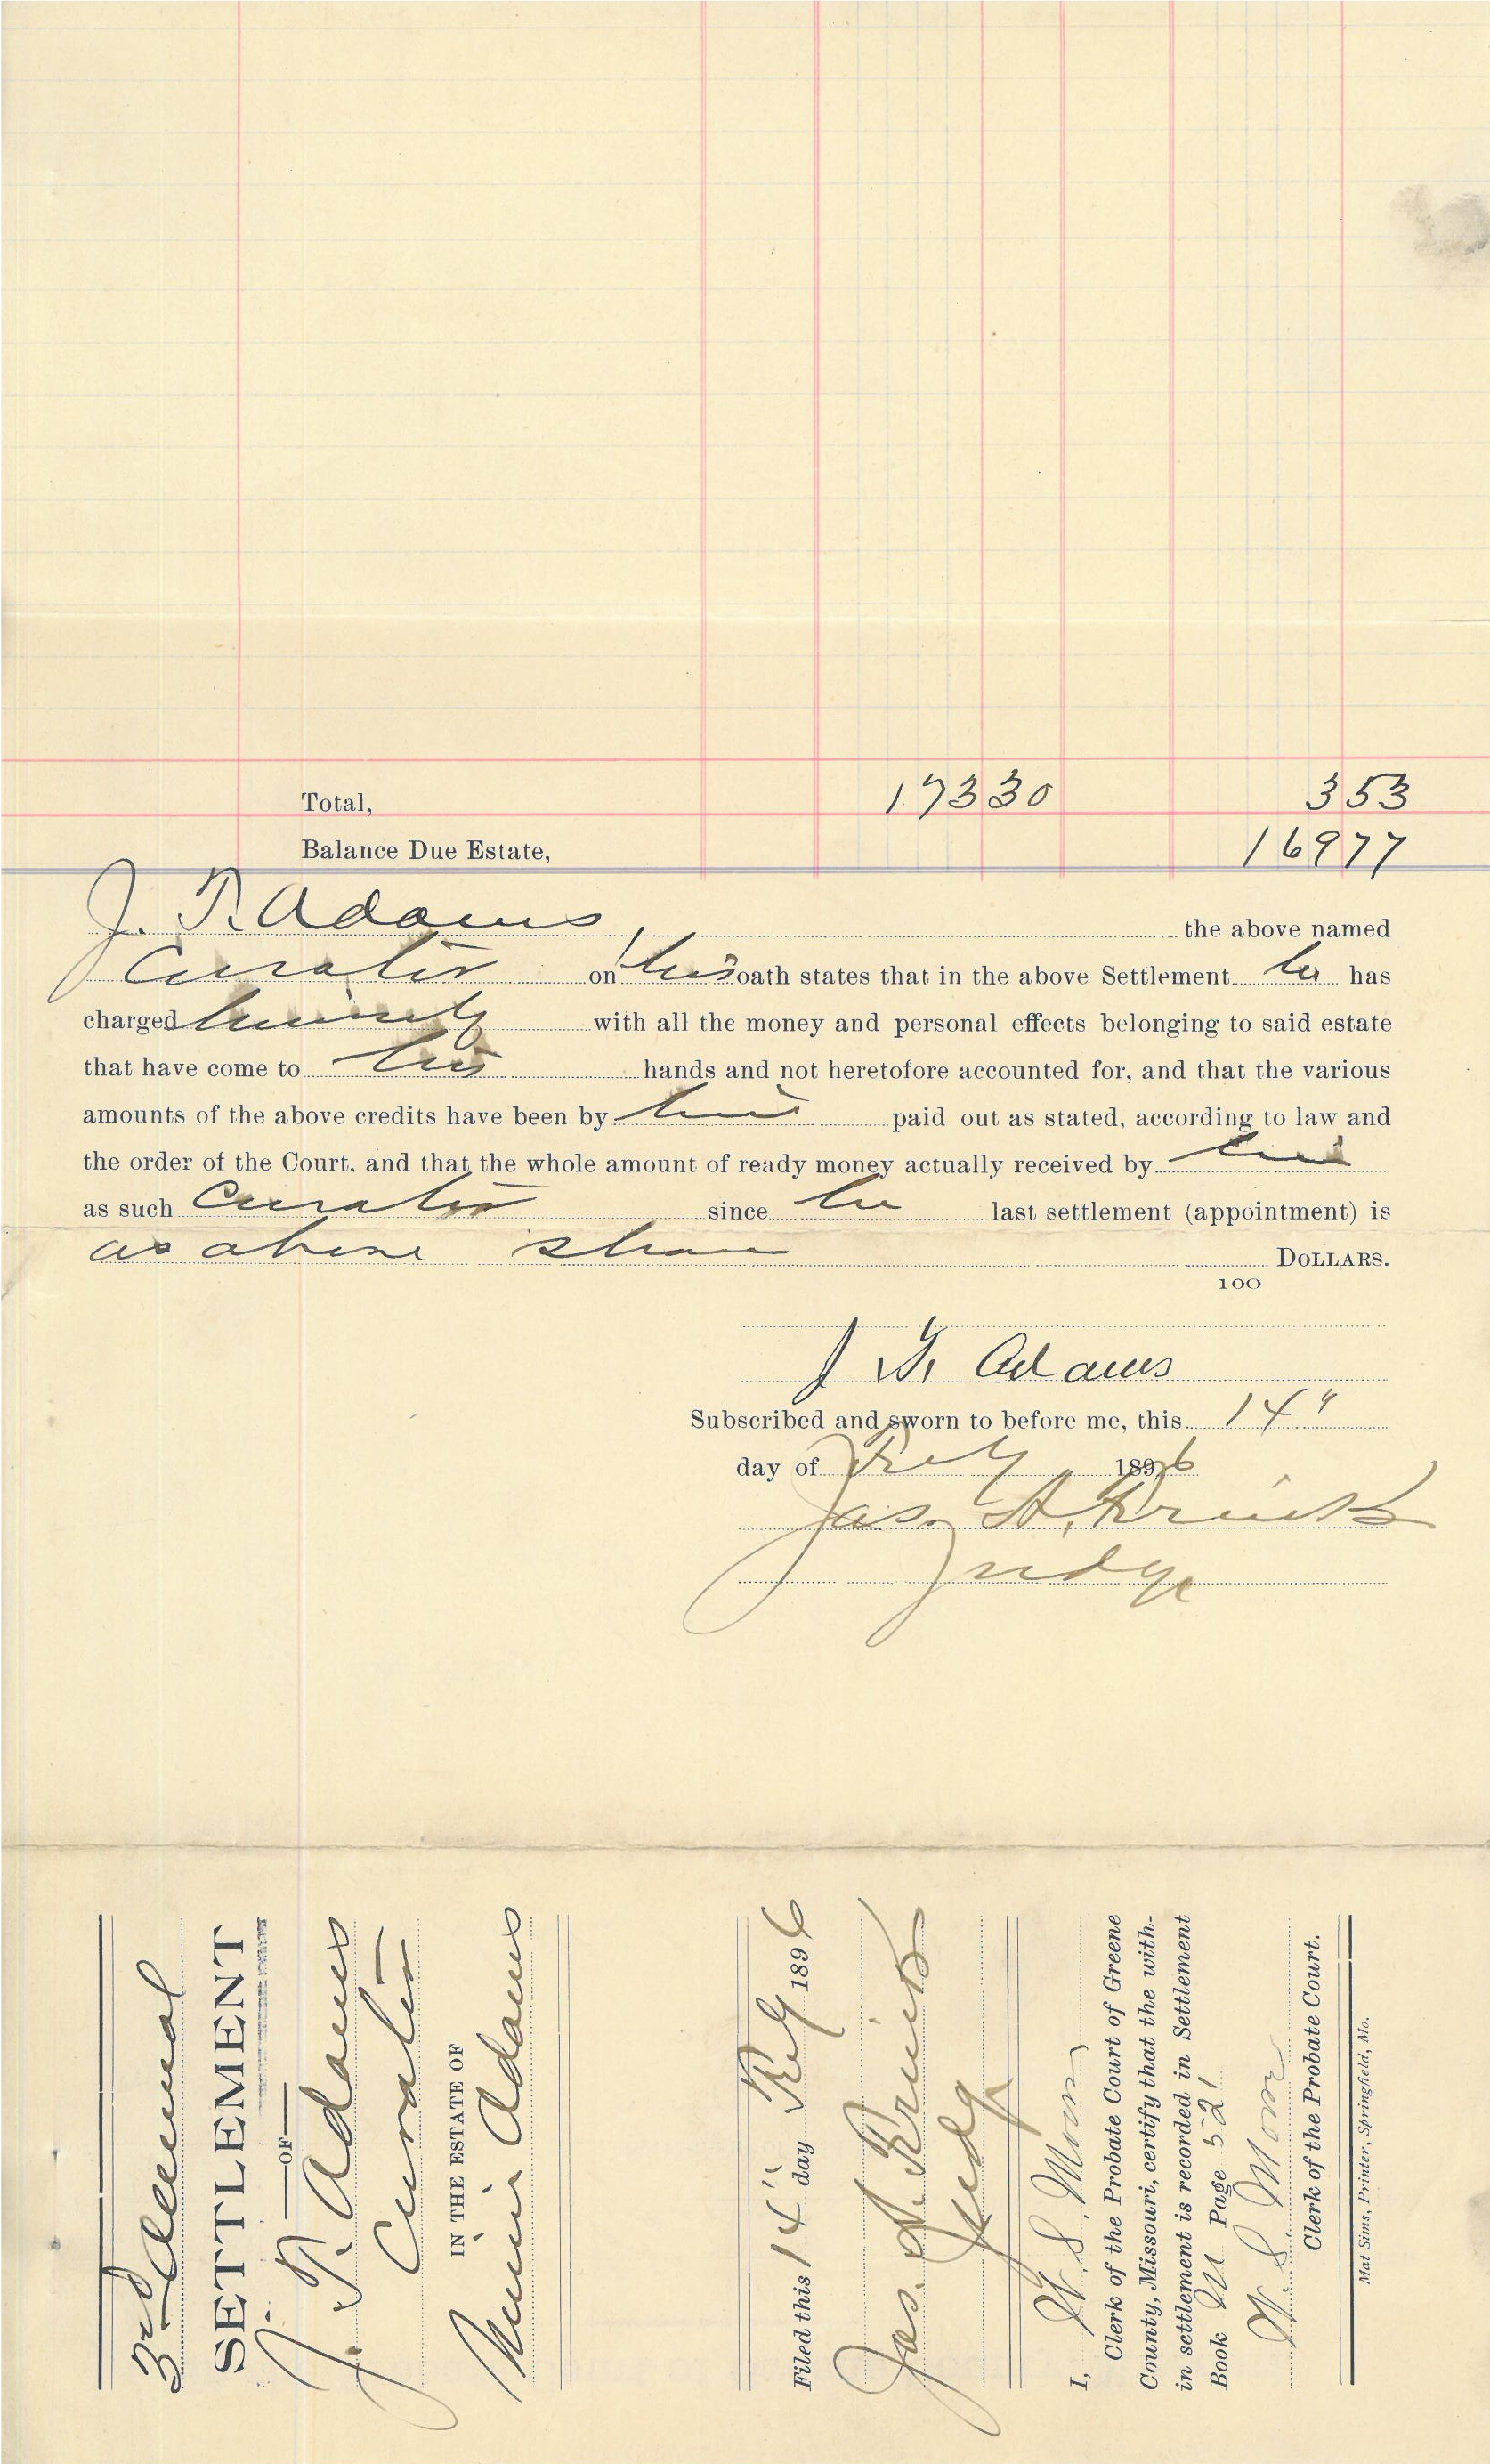 Total, 17330 353
Balance Due Estate, 16977
J. T. Adams, the above named
Curator on his oath states that in the above Settlement he has
charged himself with all the money and personal effects belonging to said estate
that have come to his hands and not heretofore accounted for, and that the various
amounts of the above credits have been by him paid out as stated, according to law and
the order of the Court. and that the whole amount of ready money actually received by him
as such Curator since his last settlement (appointment) is
as above shown DOLLARS.
100
J T. Adams
Subscribed and sworn to before me, this 14"
day of Feby 1896
Jas. A.
Judge
3rd Annual
SETTLEMENT
OF
J. T. Adams
Curator
IN THE ESTATE OF
Adams
Filed this 14" day Feby 1896
Jas. A.
Judge
I, W. S.
Clerk of the Probate Court of Greene
County, Missouri, certify that the with-
in settlement is recorded in Settlement
Book M Page 521
W. S.
Clerk of the Probate Court.
Mat Sims, Printer, Springfield, Mo.